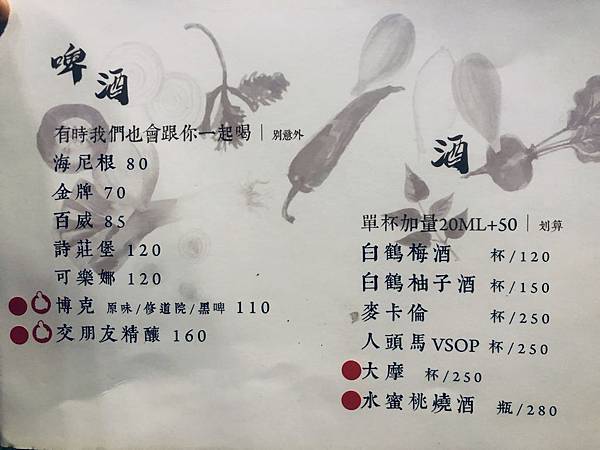 啤酒
有時我們也會跟你一起喝｜別意外
海尼根 80
金牌 70
百威 85
詩莊堡 120
可樂娜 120
博克 原味/修道院/黑啤 110
交朋友精釀 160
酒
單杯加量20ML+50｜划算
白鶴梅酒 杯/120
白鶴柚子酒 杯/150
麥卡倫 杯/250
人頭馬VSOP 杯/250
大摩 杯/250
水蜜桃燒酒 瓶/280